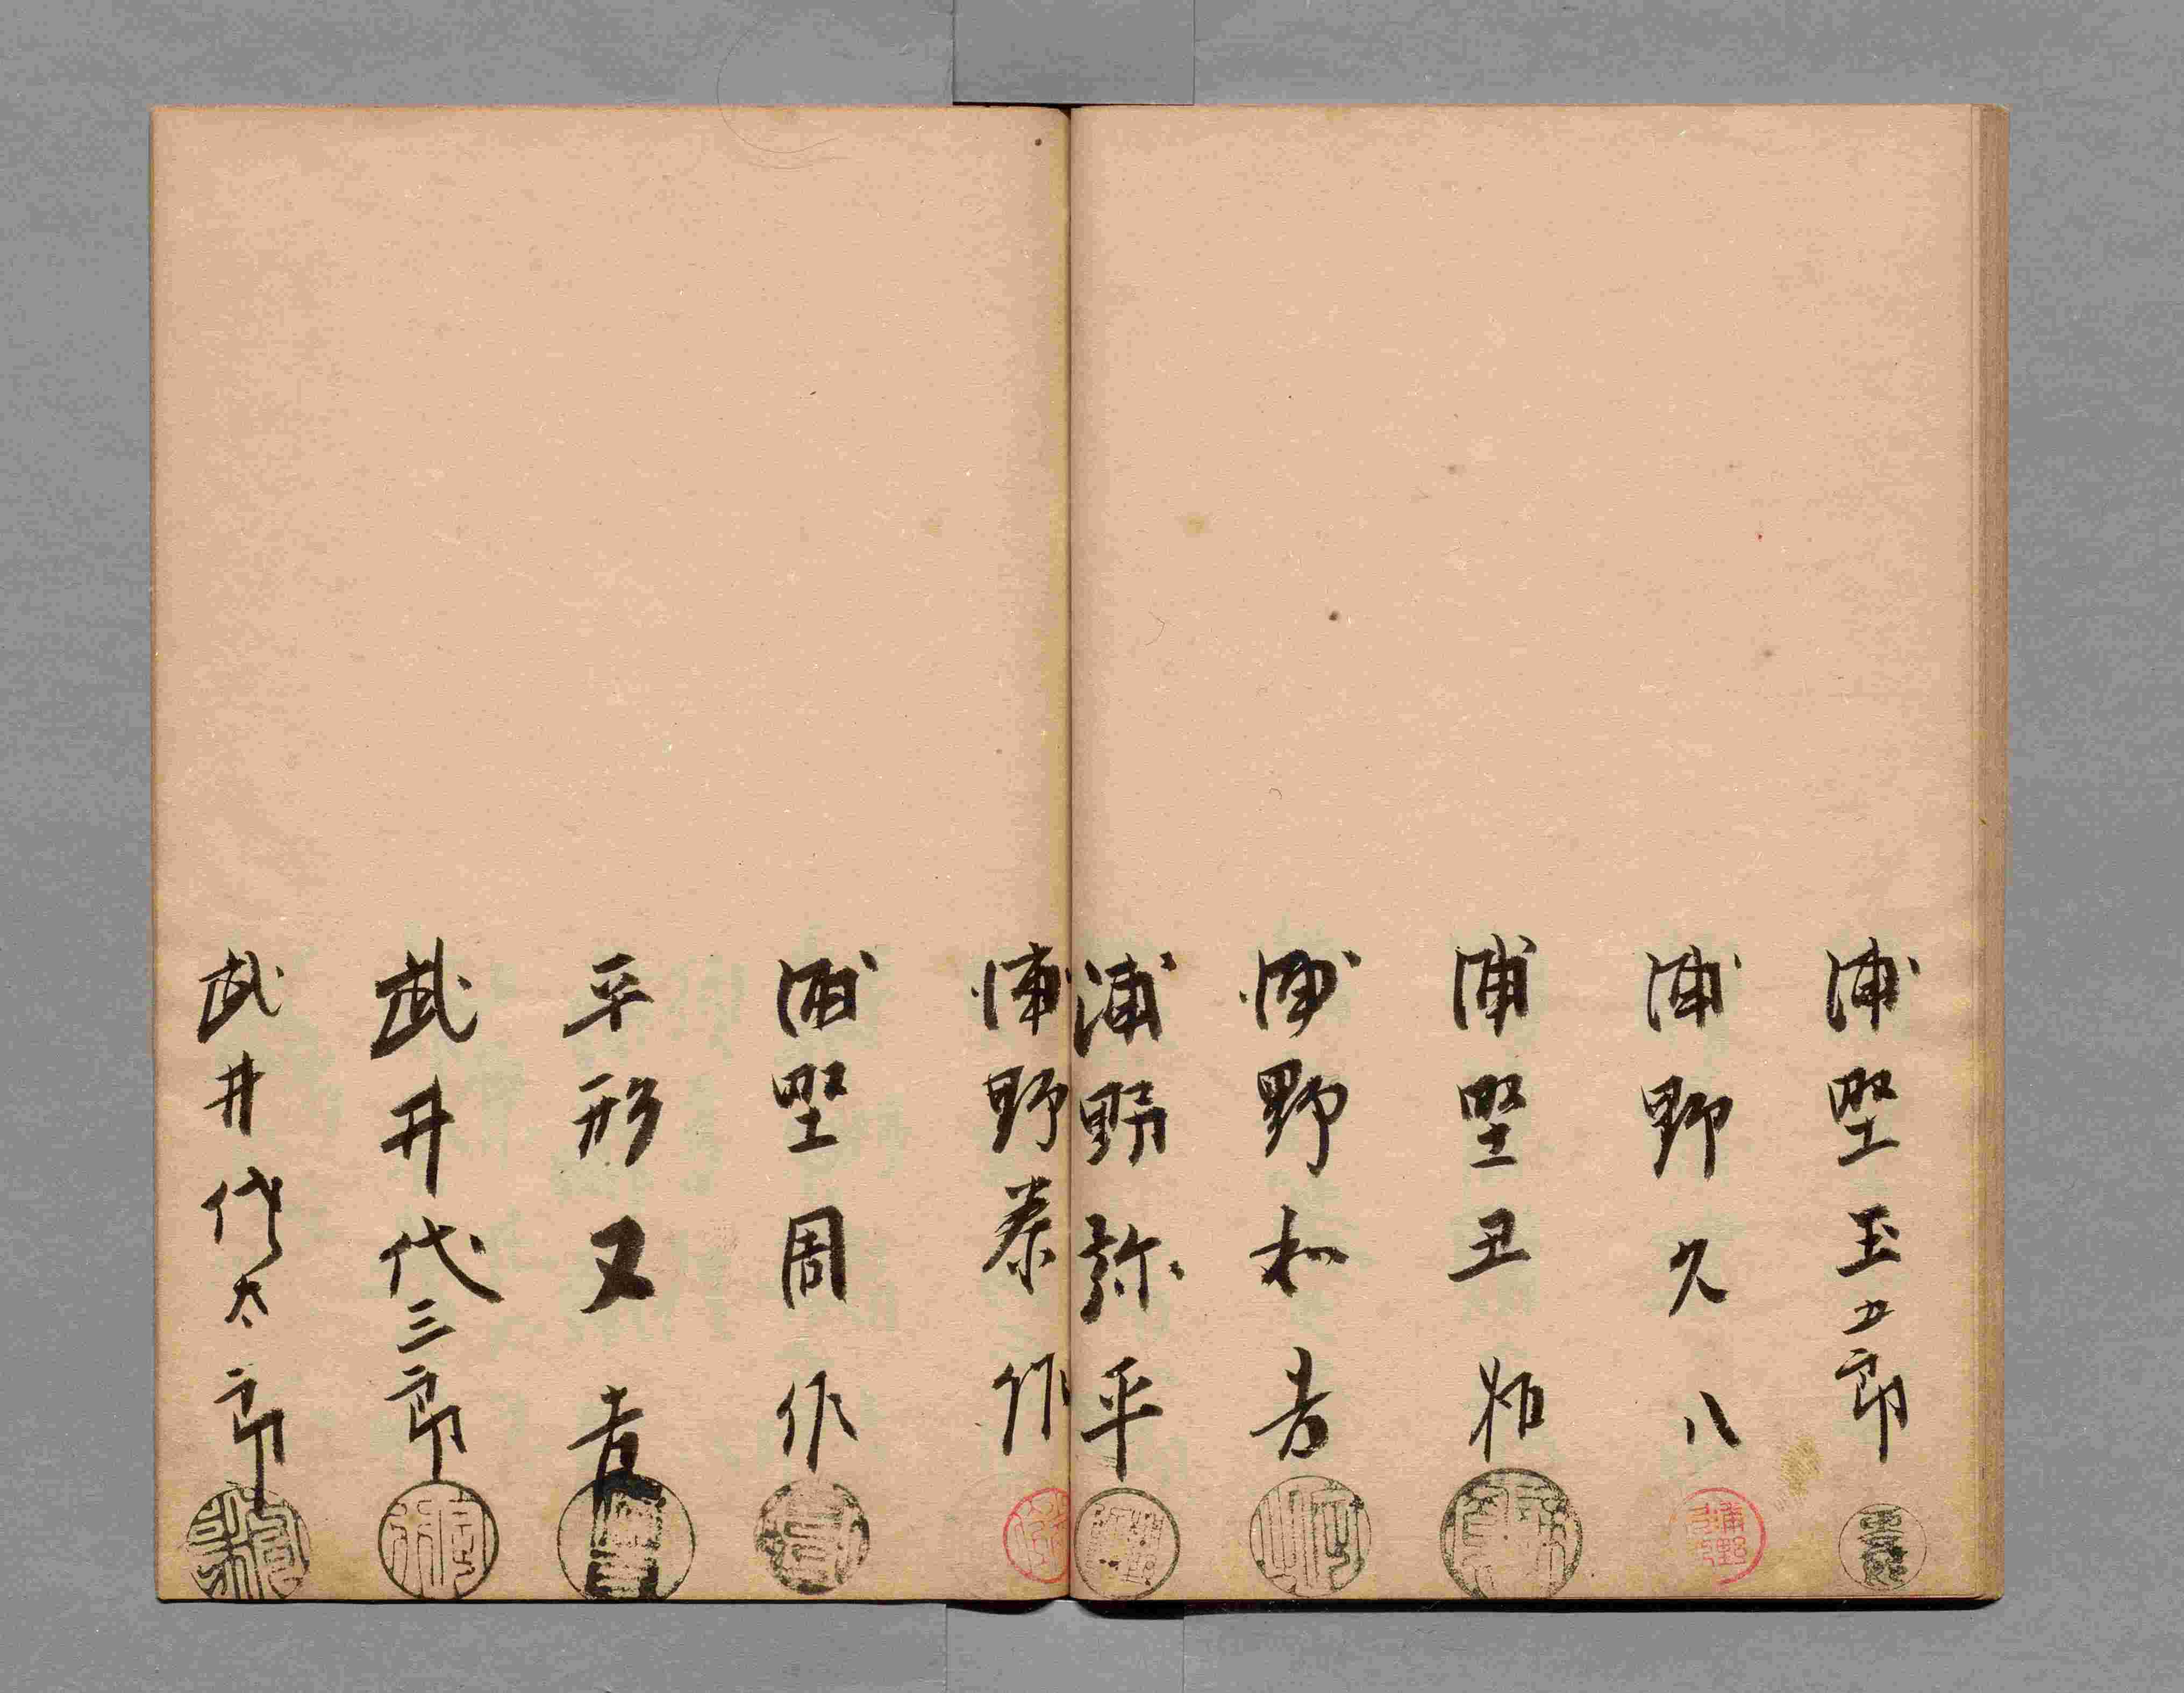 浦野玉五郎
浦野久八
浦野丑松
浦野和吉
浦野弥平
浦野泰作
浦野周作
平形又吉
武井代三郎
武井代太郎